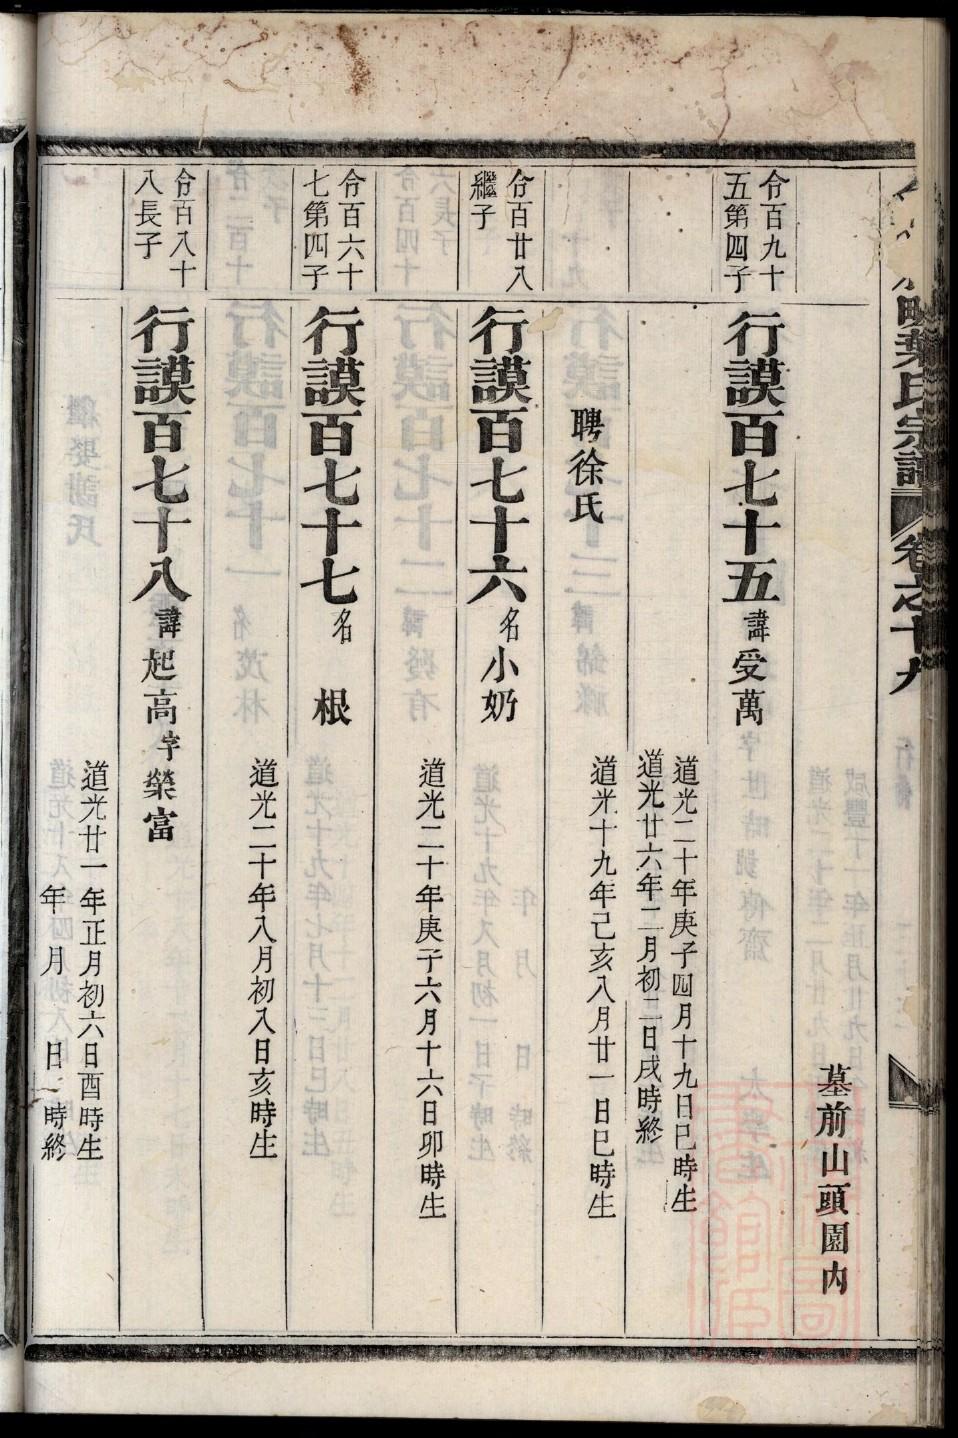 葉氏宗譜 卷之十九
墓前山頭園內
合百九十
五第四子
行謨百七十五 諱受萬
道光二十年庚子四月十九日巳時生
道光廿六年二月初二日戌時終
聘徐氏
道光十九年己亥八月廿一日巳時生
合百廿八
繼子
行謨百七十六 名小奶
道光二十年庚子六月十六日卯時生
合百六十
七第四子
行謨百七十七 名 根
道光二十年八月初八日亥時生
合百八十
八長子
行謨百七十八 諱起高字榮富
道光廿一年正月初六日酉時生
年 月 日 時終